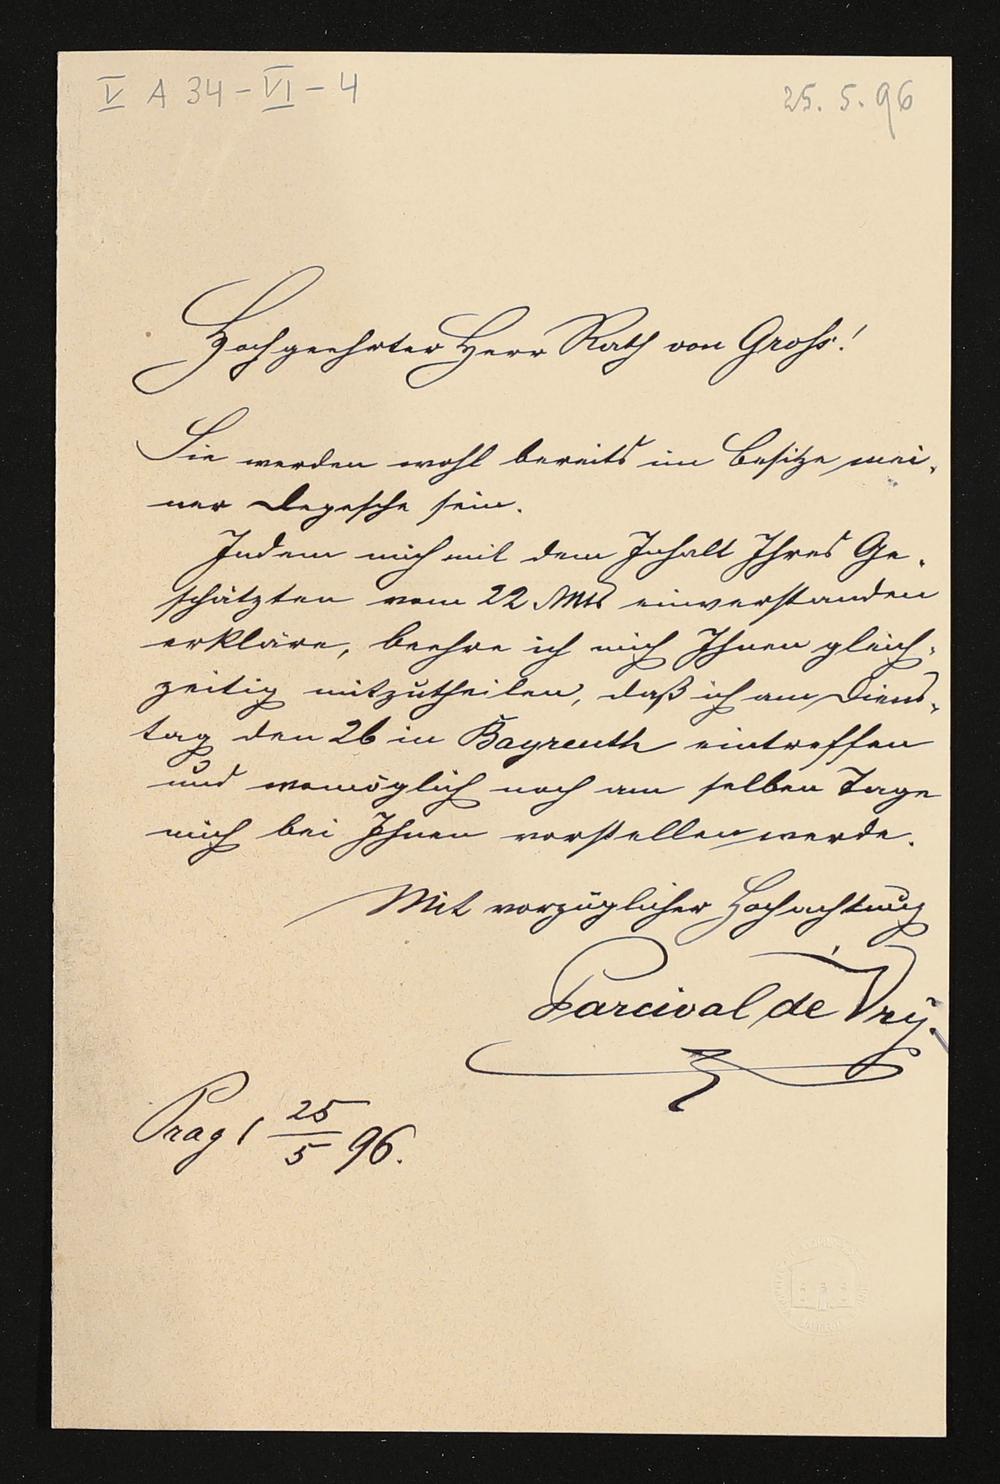 V A 34-VI-4
25. 5. 96
Hochgeehrter Herr Rath von Gross!
Sie werden wohl bereits im Besitze mei-
ner Depesche sein.
Indem mich mit dem Inhalt Ihres Ge-
schätzten vom 22 Mts einverstanden
erkläre, beehre ich mich Ihnen gleich-
zeitig mitzutheilen, daß ich am Diens-
tag den 26 in Bayreuth eintreffen
und womöglich noch am selben Tage
mich bei Ihnen vorstellen werde.
Mit vorzüglicher Hochachtung
Parcival de Vry.
Prag 25/5 96.